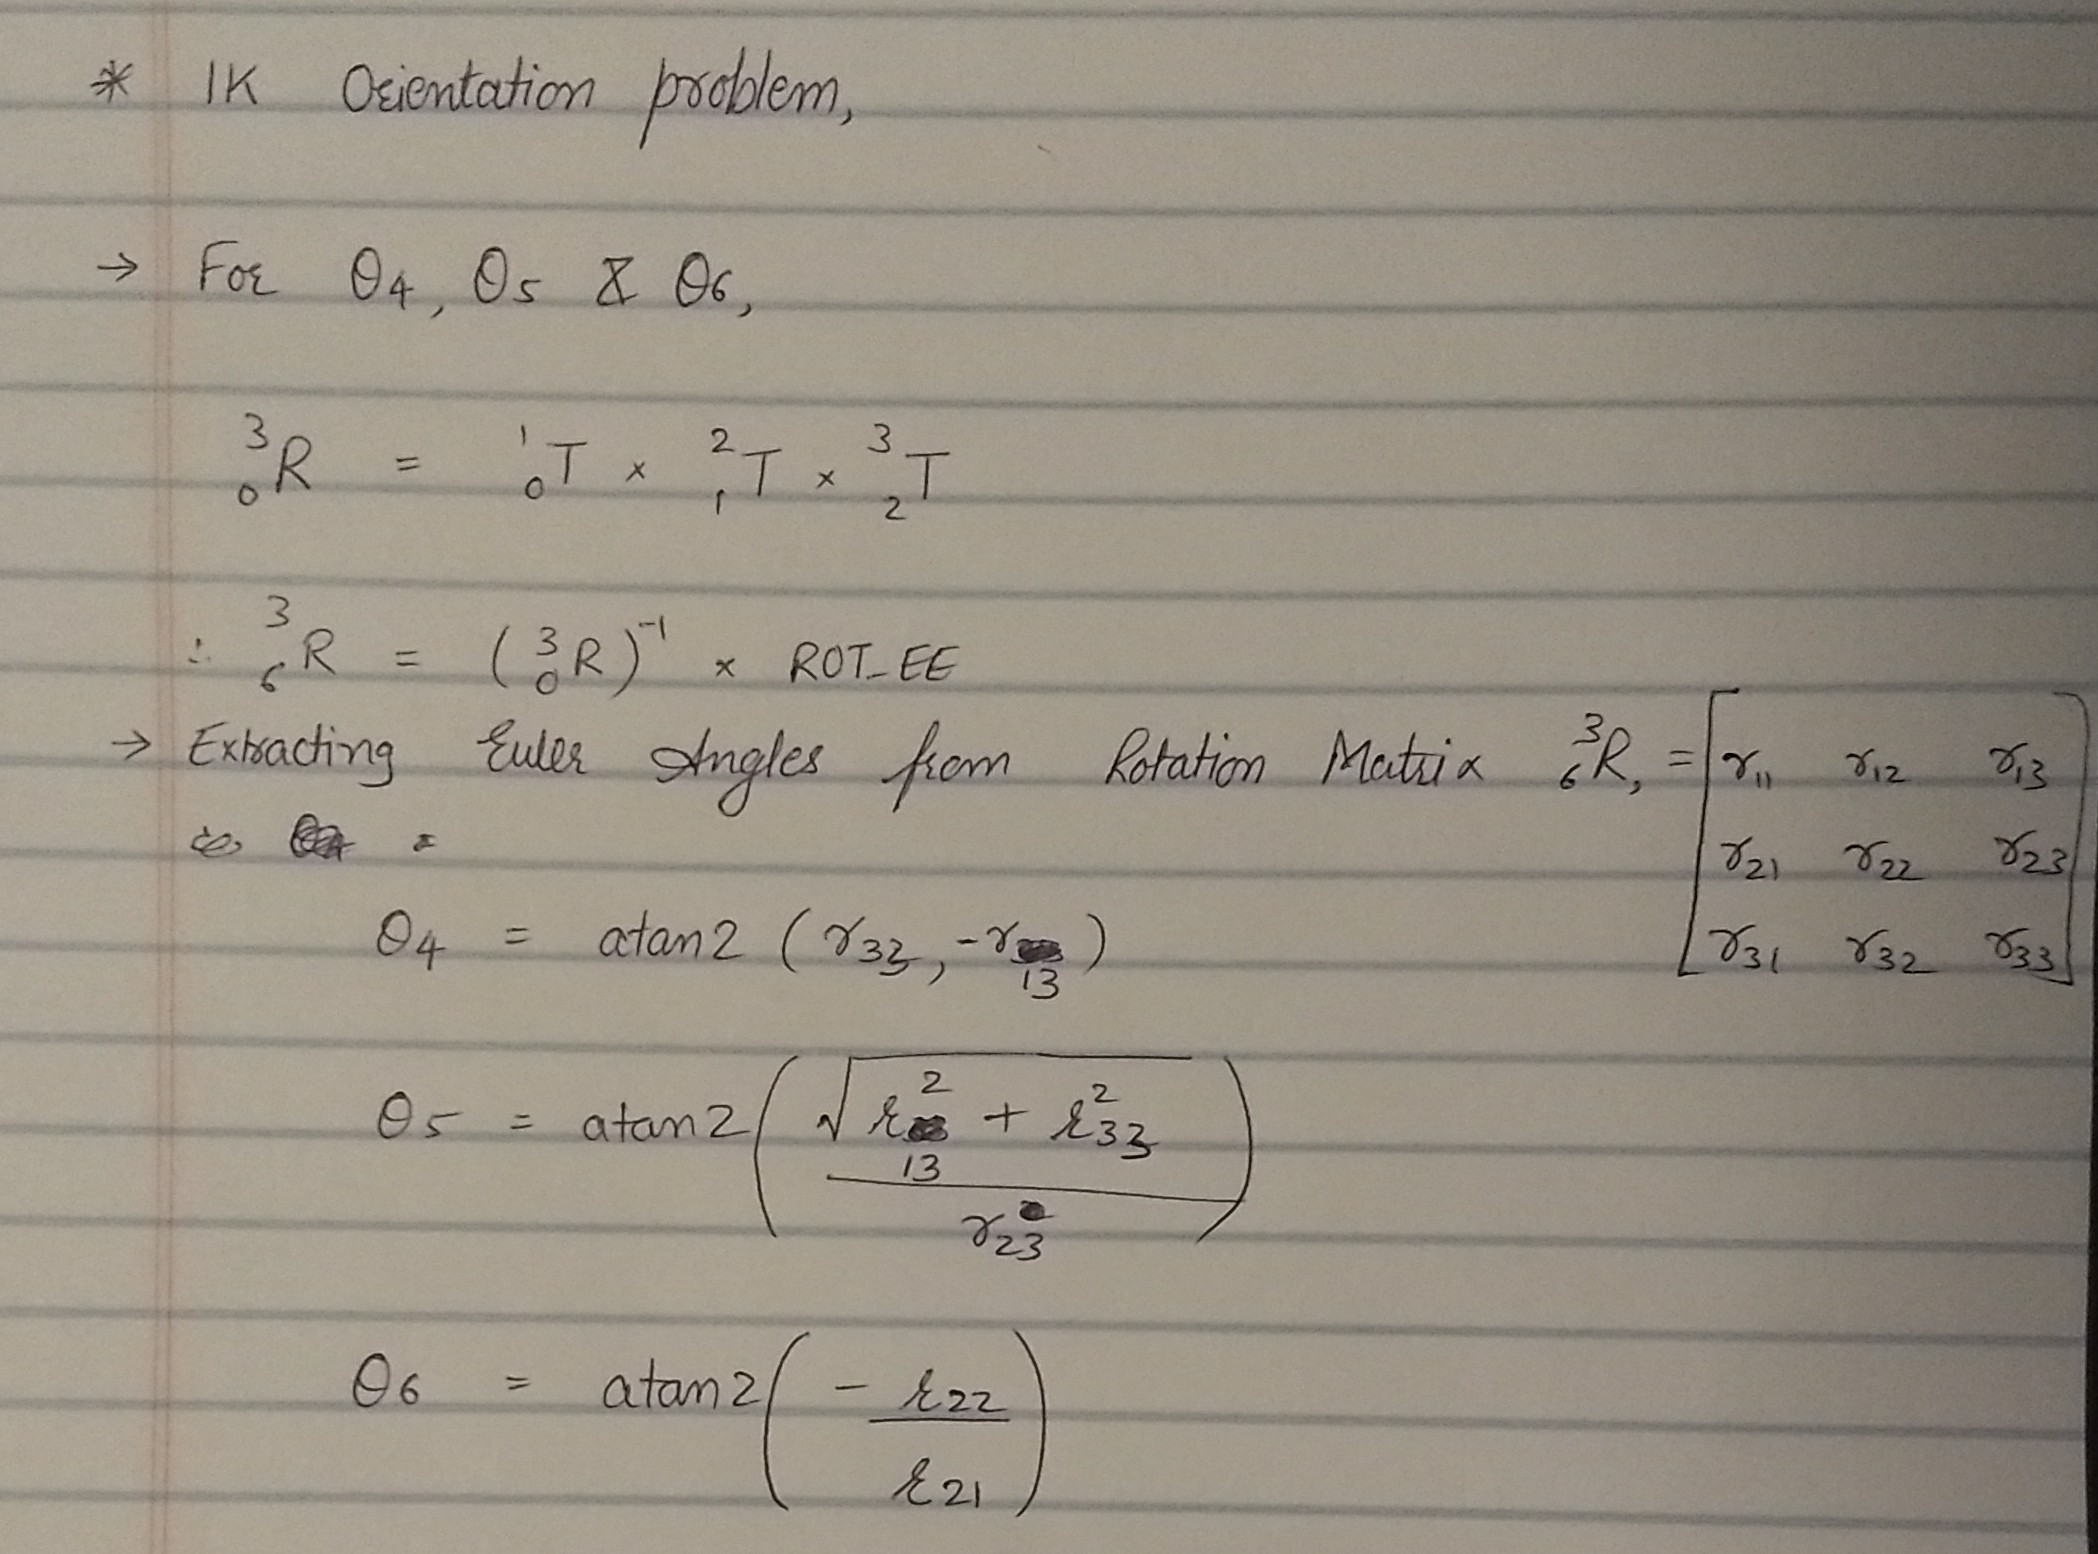 * IK Orientation problem,
→ For θ4, θ5 & θ6,
³₀R = ¹₀T × ²₁T × ³₂T
∴ ³₆R = (³₀R)⁻¹ × ROT_EE
→ Extracting Euler Angles from Rotation Matrix ³₆R, = [r11 r12 r13
r21 r22 r23
r31 r32 r33]
θ4 = atan2 (r33, -r13)
θ5 = atan2 (√(r13² + r33²) / r23)
θ6 = atan2 (- r22 / r21)